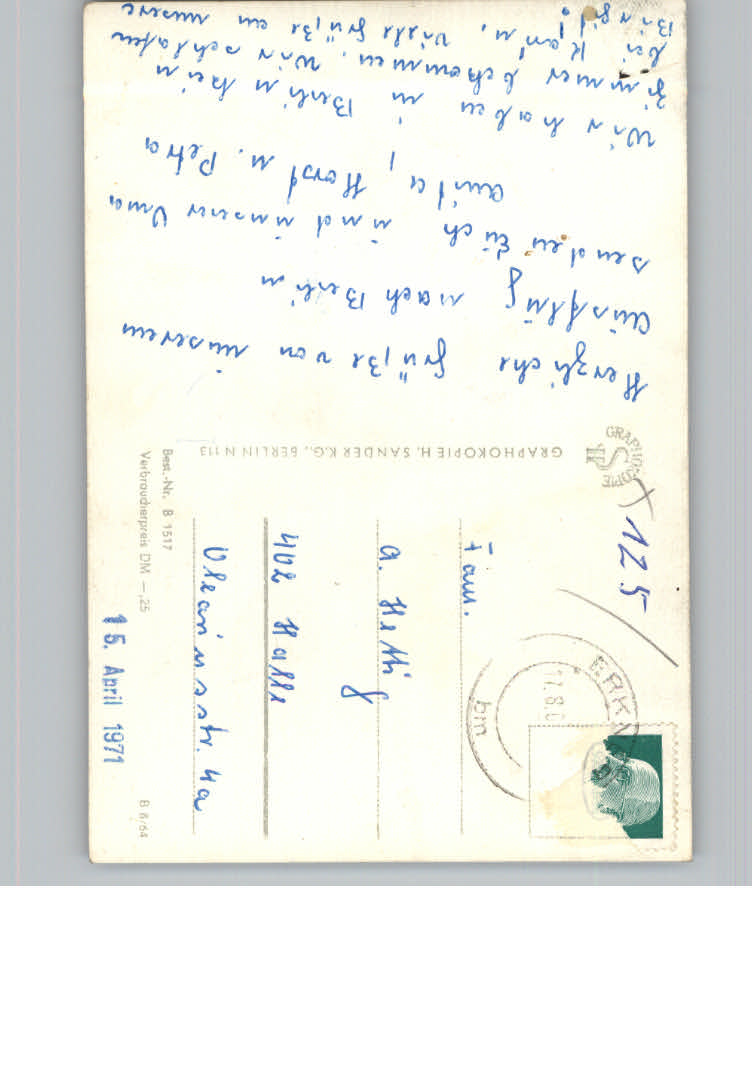 Herzliche Grüße von unserem
Ausflug nach Berlin
senden Euch und unserer Oma
Anita, Horst u. Petra
Wir haben in Berlin kein
Zimmer bekommen, wir schlafen
bei u. viele Grüße an unsere
Birgit!
GRAPHOKOPIE H. SANDER K.G., BERLIN N 113
GRAPHOKOPIE
HS
125
ERKN
17.8.6
bin
Fam.
A. Hettig
402 Halle
4a
Best.-Nr. B 1517
Verbraucherpreis DM —,25
B 6/64
15. April 1971